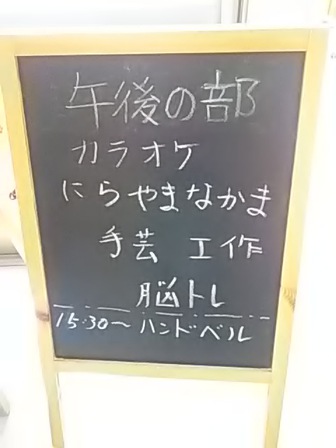 午後の部
カラオケ
にらやまなかま
手芸 工作
脳トレ
15:30～ハンドベル